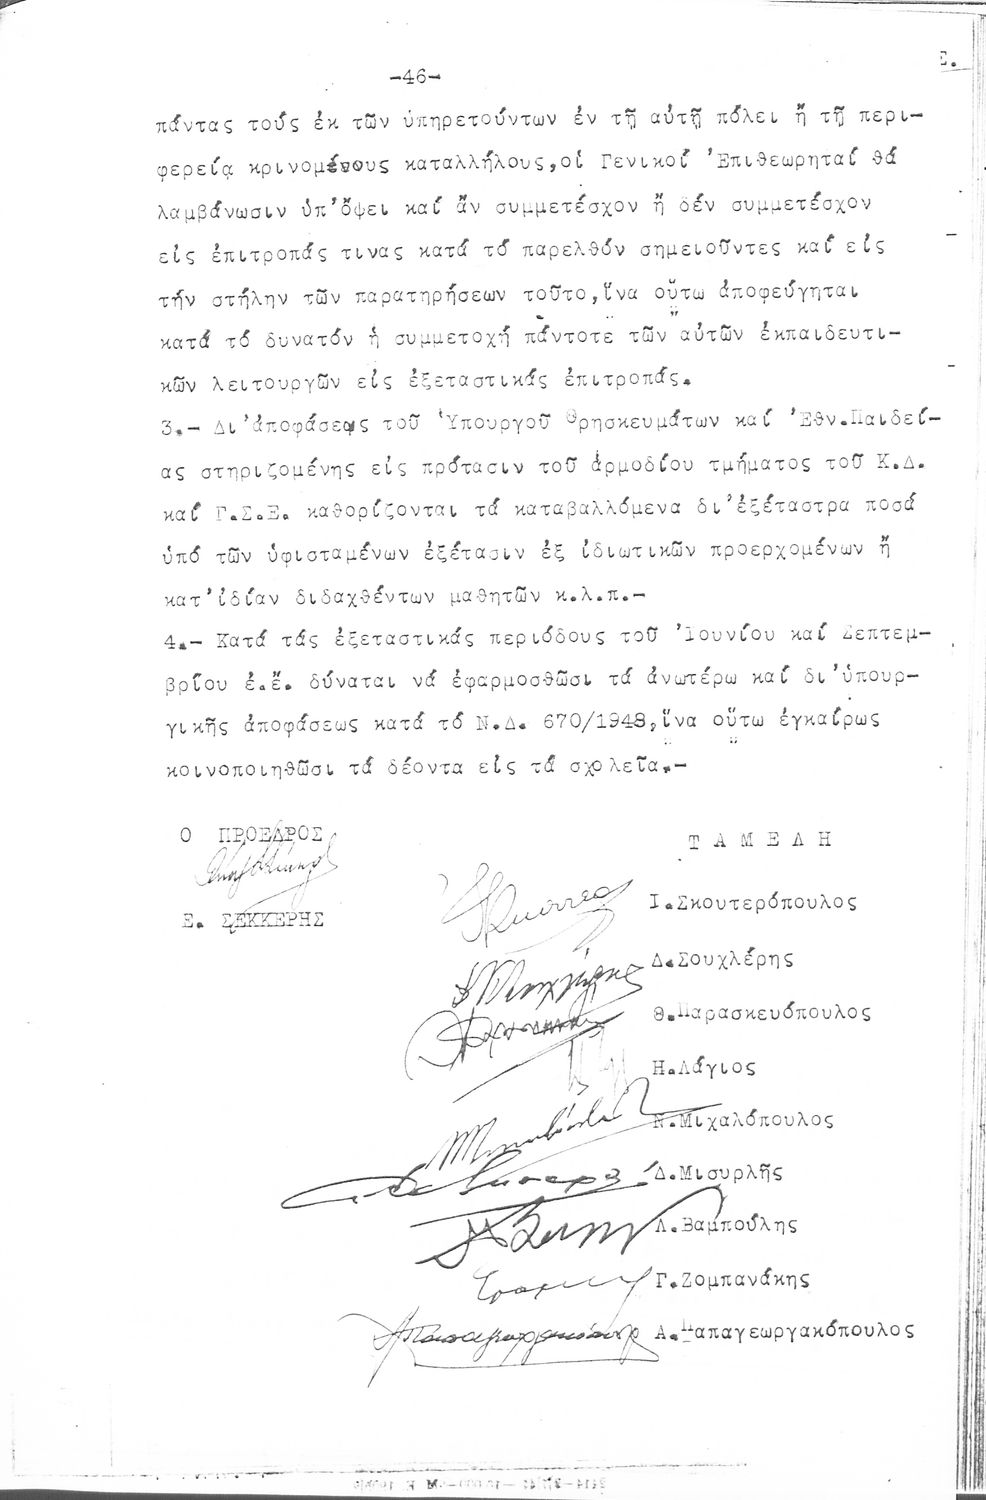 -46-
πάντας τούς ἐκ τῶν ὑπηρετούντων ἐν τῇ αὐτῇ πόλει ἤ τῇ περι-
φερείᾳ κρινομένους καταλλήλους,οἱ Γενικοί Ἐπιθεωρηταί θά
λαμβάνωσιν ὑπ'ὄψει καί ἄν συμμετέσχον ἤ δέν συμμετέσχον
εἰς ἐπιτροπάς τινας κατά τό παρελθόν σημειοῦντες καί εἰς
τήν στήλην τῶν παρατηρήσεων τοῦτο,ἵνα οὕτω ἀποφεύγηται
κατά τό δυνατόν ἡ συμμετοχή πάντοτε τῶν αὐτῶν ἐκπαιδευτι-
κῶν λειτουργῶν εἰς ἐξεταστικάς ἐπιτροπάς.
3.- Δι'ἀποφάσεως τοῦ Ὑπουργοῦ Θρησκευμάτων καί Ἐθν.Παιδεί-
ας στηριζομένης εἰς πρότασιν τοῦ ἁρμοδίου τμήματος τοῦ Κ.Δ.
καί Γ.Σ.Ε. καθορίζονται τά καταβαλλόμενα δι'ἐξέταστρα ποσά
ὑπό τῶν ὑφισταμένων ἐξέτασιν ἐξ ἰδιωτικῶν προερχομένων ἤ
κατ'ἰδίαν διδαχθέντων μαθητῶν κ.λ.π.-
4.- Κατά τάς ἐξεταστικάς περιόδους τοῦ Ἰουνίου καί Σεπτεμ-
βρίου ἐ.ἔ. δύναται νά ἐφαρμοσθῶσι τά ἀνωτέρω καί δι'ὑπουρ-
γικῆς ἀποφάσεως κατά τό Ν.Δ. 670/1948,ἵνα οὕτω ἐγκαίρως
κοινοποιηθῶσι τά δέοντα εἰς τά σχολεῖα.-
Ο ΠΡΟΕΔΡΟΣ
Ε. ΣΕΚΚΕΡΗΣ
Τ Α Μ Ε Λ Η
Ι.Σκουτερόπουλος
Δ.Σουχλέρης
Θ.Παρασκευόπουλος
Η.Λάγιος
Ν.Μιχαλόπουλος
Δ.Μισυρλῆς
Λ.Βαμπούλης
Γ.Ζομπανάκης
Α.Παπαγεωργακόπουλος